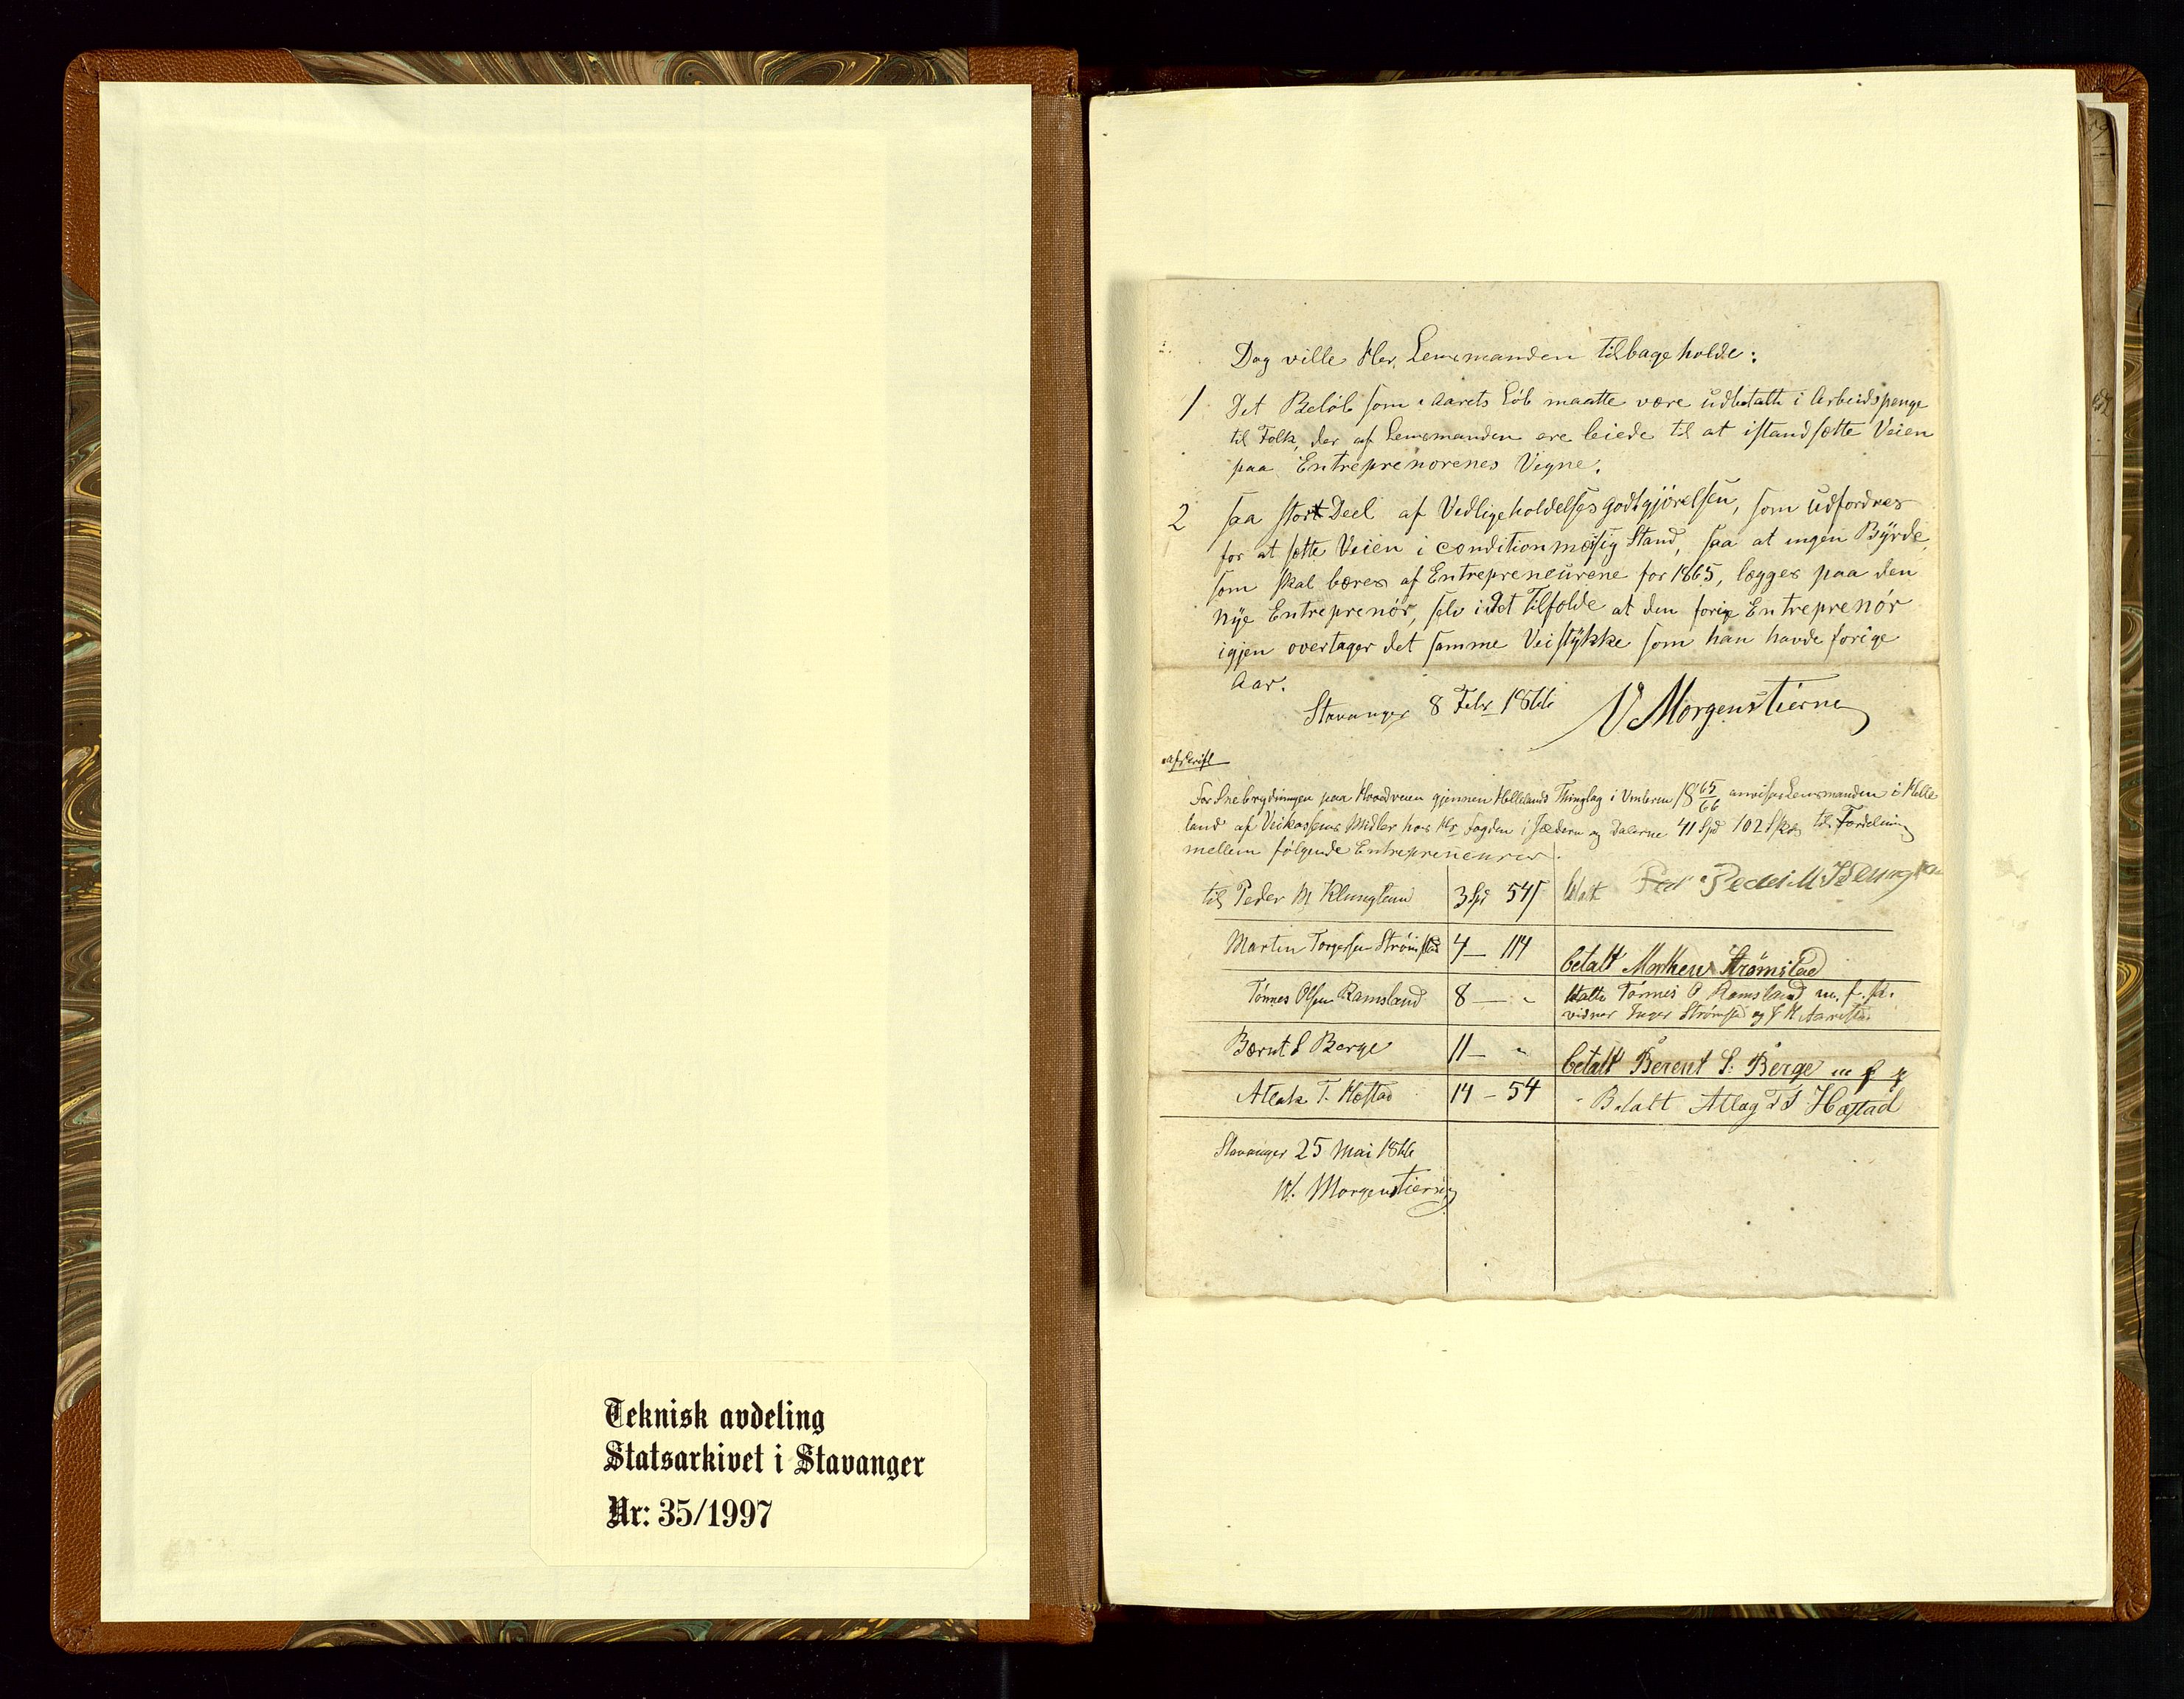 Teknisk avdeling
Statsarkivet i Stavanger
Nr: 35/1997
Dog ville Hr. Lensmanden tilbageholde:
1 Det Beløb som i Aarets Løb maatte være udbetalt i Arbeidspenge
til Folk, der af Lensmanden ere leiede til at istandsætte Veien
paa Entreprenorenes Vegne.
2 saa stor Deel af Vedligeholdelsesgodtgjørelsen, som udfordres
for at sætte Veien i conditionmæssig Stand, saa at ingen Byrde,
som skal bæres af Entrepreneurene for 1865, lægges paa den
nye Entreprenør, selv i det Tilfælde at den forige Entreprenør
igjen overtager det samme Veistykke som han havde forige
Aar.
Stavanger 8 Febr 1866 V Morgenstierne
Afskrift
For Snebrydningen paa Hovedveien gjennem Hellelands Thinglag i Vinteren 1865/66 anvises Lensmanden i Helle
land af Veikassens Midler hos Hr Fogden i Jæderen og Dalerne 41 Spd 102 Sk til Fordeling
mellem følgende Entrepreneurer.
til Peder M Klungland 3 Spd 54 betalt Peder M Klungland
Martin Torgersen Strømstad 4 — 114 betalt Strømstad
Tønnes Olsen Ramsland 8 — " betalt Tønnes O Ramsland m. f. P.
vidner Inger Strømstad og
Bernt S Berge 11 — " betalt Berent S. Berge m f p
Atlak T. Hæstad 14 — 54 Betalt Atlag T S Hæstad
Stavanger 25 Mai 1866
W. Morgenstierne